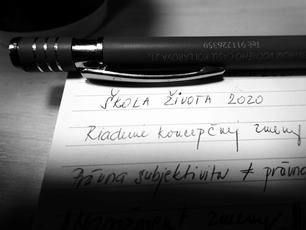 Tel: 911226359
ŠKOLA ŽIVOTA 2020
Riadenie koncepčnej zmeny
Právna subjektivita ≠ právna
zmeny